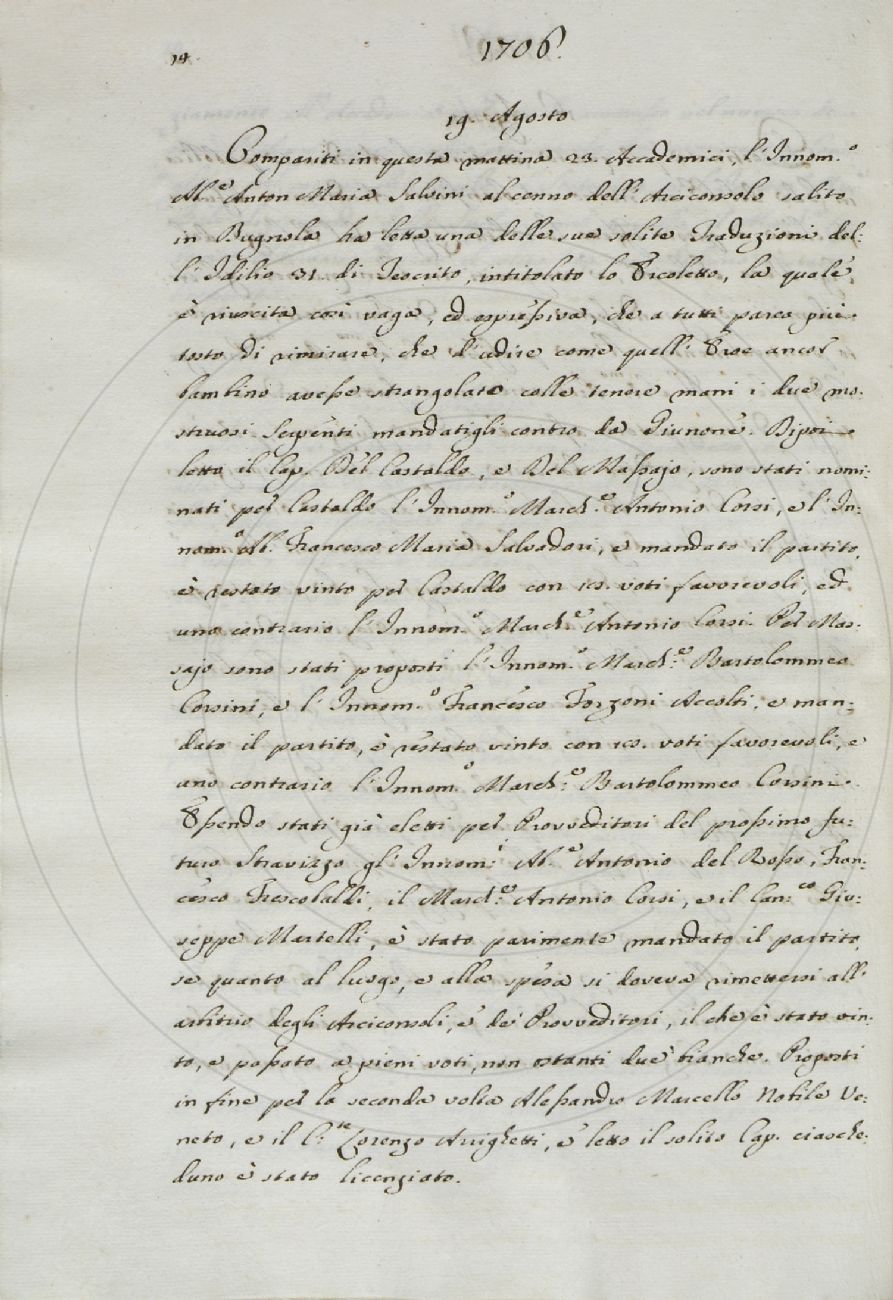 14.
1706.
19. Agosto
Compariti in questa mattina 23. Accademici, l'Innom.º
Ab.e Anton Maria Salvini al cenno dell'Arciconsolo salito
in Bugnola ha letta una delle sue solite Traduzioni del-
l'Idilio 31. di Teocrito, intitolato lo Ercoletto, la quale
è riuscita così vaga, ed espressiva, che a tutti parea più
tosto di rimirare, che d'udire come quell'Eroe ancor
bambino avesse strangolate colle tenere mani i due mo-
struosi Serpenti mandatigli contro da Giunone. Dipoi
letto il Cap. Del Castaldo, e Del Massajo, sono stati nomi-
nati pel Castaldo l'Innom.º March.e Antonio Corsi, e l'In-
nom.º Ab. Francesco Maria Salvadori, e mandato il partito,
è restato vinto pel Castaldo con voti favorevoli, ed
uno contrario l'Innom.º March.e Antonio Corsi. Pel Mas-
sajo sono stati proposti l'Innom.º March.e Bartolommeo
Corsini, e l'Innom.º Francesco Forzoni Accolti, e man-
dato il partito, è restato vinto con voti favorevoli, e
uno contrario l'Innom.º March.e Bartolommeo Corsini.
Essendo stati già eletti pel Provveditori del prossimo fu-
turo Stravizzo gl'Innom.i Ab.e Antonio del Rosso, Fran-
cesco Frescobaldi, il March.e Antonio Corsi, e il Can.co Giu-
seppe Martelli, è stato parimente mandato il partito,
se quanto al luogo, e alla spesa si doveva rimettersi all'
arbitrio degli Arciconsoli, e de' Provveditori, il che è stato vin-
to, e passato a pieni voti, non ostanti due bianche. Proposti
in fine per la seconda volta Alessandro Marcello Nobile Ve-
neto, e il C.te Lorenzo Arrighetti, e letto il solito Cap. ciasche-
duno è stato licenziato.